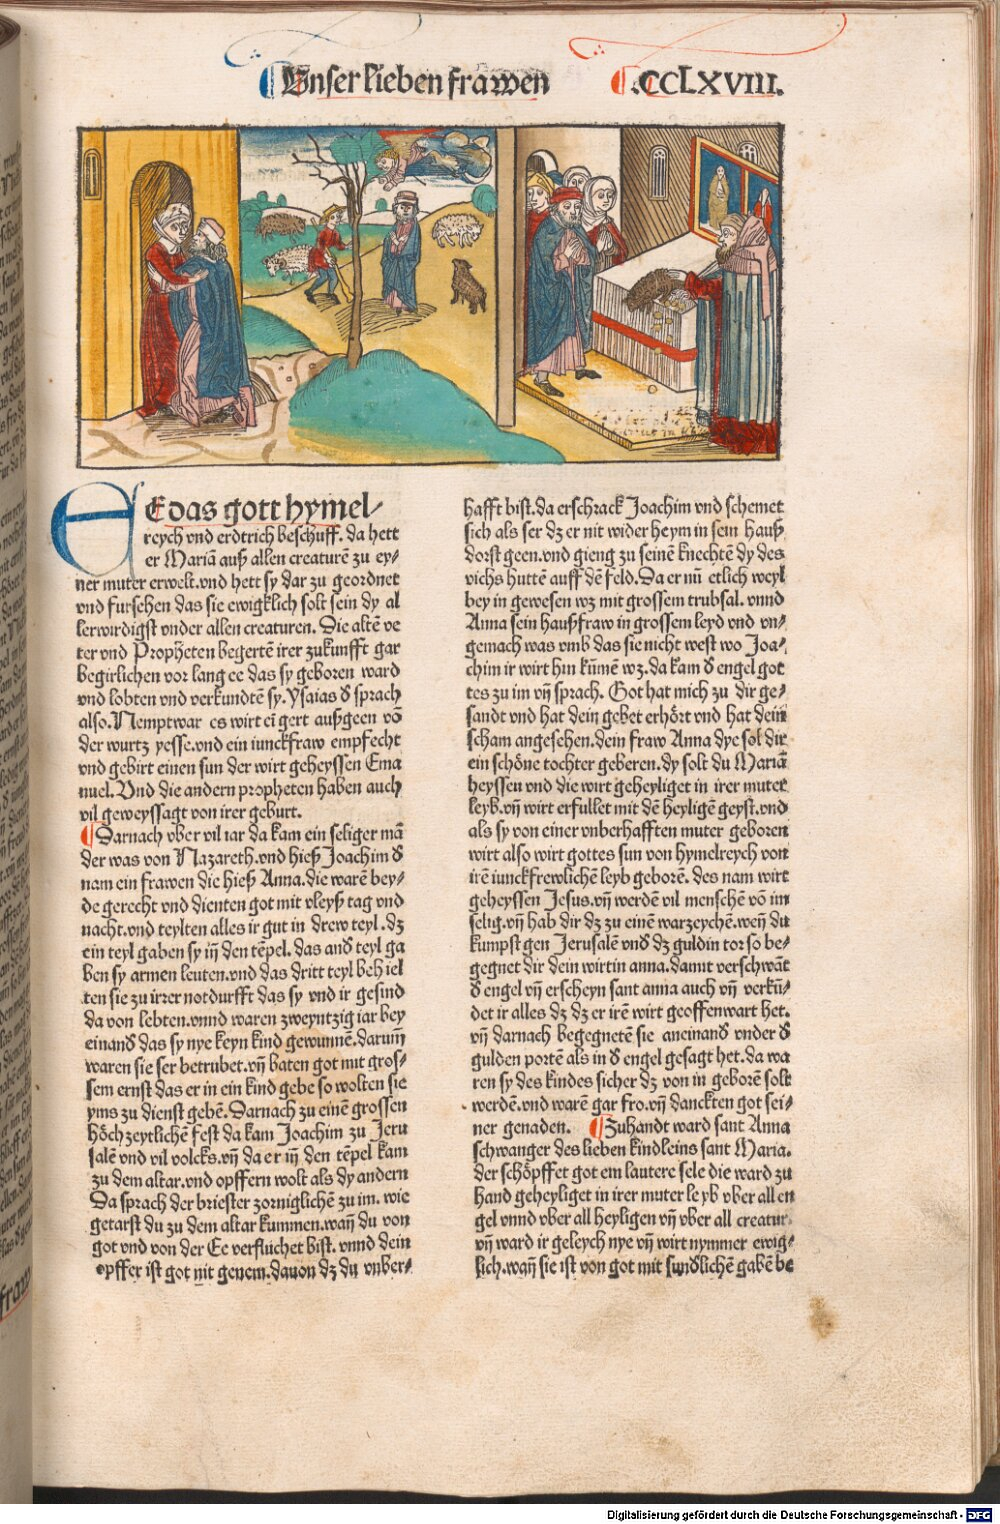 Unser lieben frawen .CCLXVIII.
EE das gott hymel⸗
reych vnd erdtrich beschuff. da hett
er Mariā auß allen creaturē zu ey⸗
ner muter erwelt. vnd hett sy dar zu geordnet
vnd fursehen das sie ewigklich solt sein dy al
lerwirdigst vnder allen creaturen. Die altē ve
ter vnd Propheten begertē irer zukunfft gar
begirlichen vor lang ee das sy geboren ward
vnd lobten vnd verkundtē sy. Ysaias d̕ sprach
also. Nemptwar es wirt eī gert außgeen vō
der wurtz yesse. vnd ein iunckfraw empfecht
vnd gebirt einen sun der wirt geheyssen Ema
nuel. Vnd die andern propheten haben auch
vil geweyssagt von irer geburt.
¶ Darnach vber vil iar da kam ein seliger mā
der was von Nazareth. vnd hieß Joachim d̕
nam ein frawen die hieß Anna. die warē bey⸗
de gerecht vnd dienten got mit vleyß tag vnd
nacht. vnd teylten alles ir gut in drew teyl. dz
ein teyl gaben sy in den tēpel. das and̕ teyl ga
ben sy armen leuten. vnd das dritt teyl behiel
ten sie zu irer notdurfft das sy vnd ir gesind
da von lebten. vnnd waren zweyntzig iar bey
einand̕ das sy nye keyn kind gewunnē. darum̄
waren sie ser betrubet. vn̄ baten got mit gros⸗
sem ernst das er in ein kind gebe so wolten sie
yms zu dienst gebē. Darnach zu einē grossen
höchzeytlichē fest da kam Joachim zu Jeru
salē vnd vil volcks. vn̄ da er in̄ den tēpel kam
zu dem altar. vnd opffern wolt als dy andern
Da sprach der briester zorniglichē zu im. wie
getarst du zu dem altar kummen. wan̄ du von
got vnd von der Ee verfluchet bist. vnnd dein
opffer ist got nit genem. dauon dz du vnber⸗
hafft bist. da erschrack Joachim vnd schemet
sich als ser dz er nit wider heym in sein hauß
dorst geen. vnd gieng zu seinē knechtē dy des
vichs huttē auff dē feld. Da er nū etlich weyl
bey in gewesen wz mit grossem trubsal. vnnd
Anna sein haußfraw in grossem leyd vnd vn⸗
gemach was vmb das sie nicht west wo Joa⸗
chim ir wirt hin kūmē wz. da kam d̕ engel got
tes zu im vn̄ sprach. Got hat mich zu dir ge⸗
sandt vnd hat dein gebet erhört vnd hat dein
scham angesehen. dein fraw Anna dye sol dir
ein schöne tochter geberen. dy solt du Mariā
heyssen vnd die wirt geheyliget in irer muter
leyb. vn̄ wirt erfullet mit dē heyligē geyst. vnd
als sy von einer vnberhafften muter geboren
wirt also wirt gottes sun von hymelreych von
irē iunckfrewlichē leyb geborē. des nam wirt
geheyssen Jesus. vn̄ werdē vil menschē vō im
selig. vn̄ hab dir dz zu einē warzeychē. wen̄ du
kumpst gen Jerusalē vnd̕ dz guldin tor so be⸗
gegnet dir dein wirtin anna. damit verschwāt
d̕ engel vn̄ erscheyn sant anna auch vn̄ verkū⸗
det ir alles dz dz er irē wirt geoffenwart het.
vn̄ darnach begegnetē sie aneinand̕ vnder d̕
gulden portē als in d̕ engel gesagt het. da wa
ren sy des kindes sicher dz von in geborē solt
werdē. vnd warē gar fro. vn̄ danckten got sei⸗
ner genaden. ¶ Zuhandt ward sant Anna
schwanger des lieben kindleins sant Maria.
der schöpffet got em lautere sele die ward zu
hand geheyliget in irer muter leyb vber all en
gel vnnd vber all heyligen vn̄ vber all creatur
vn̄ ward ir geleych nye vn̄ wirt nymmer ewig⸗
lich. wan̄ sie ist von got mit sundlichē gabē be
Digitalisierung gefördert durch die Deutsche Forschungsgemeinschaft - DFG